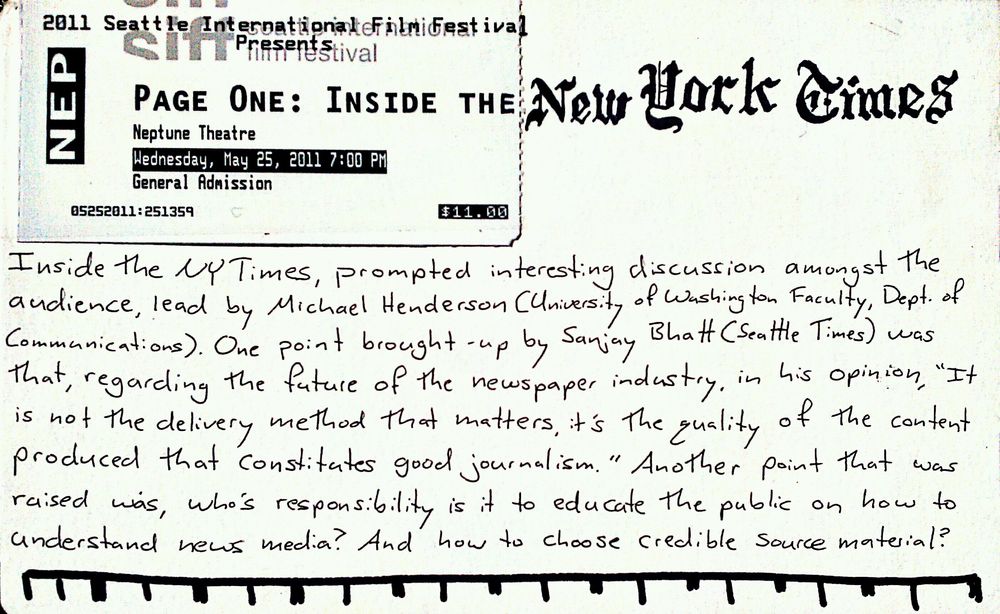 2011 Seattle International Film Festival
siff seattle international
film festival
Presents
NEP
PAGE ONE: INSIDE THE New York Times
Neptune Theatre
Wednesday, May 25, 2011 7:00 PM
General Admission
05252011:251359
$11.00
Inside the NY Times, prompted interesting discussion amongst the
audience, lead by Michael Henderson (University of Washington Faculty, Dept. of
Communications). One point brought-up by Sanjay Bhatt (Seattle Times) was
that, regarding the future of the newspaper industry, in his opinion, "It
is not the delivery method that matters, it's the quality of the content
produced that constitates good journalism." Another point that was
raised was, who's responsibility is it to educate the public on how to
understand news media? And how to choose credible source material?